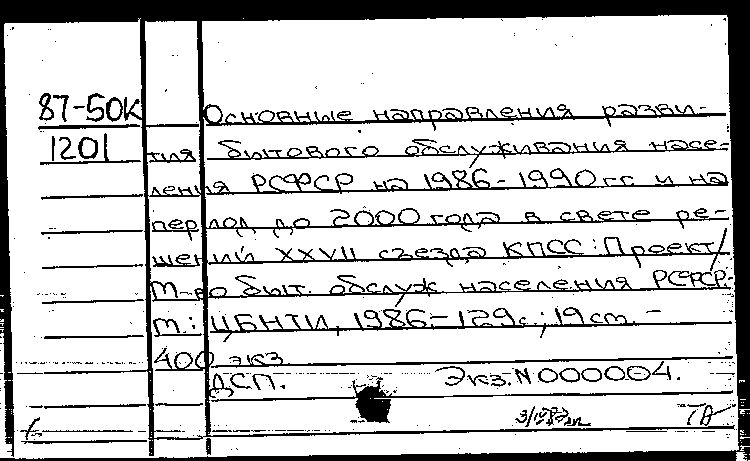 87-50К Основные направления разви-
1201 тия бытового обслуживания насе-
ления РСФСР на 1986-1990гг и на
период до 2000 года в свете ре-
шений XXVII съезда КПСС: Проект/
М-во быт. обслуж населения РСФСР.-
М.: ЦБНТИ, 1986.-129с.; 19 см. -
400 экз
ДСП. Экз. N 000004.